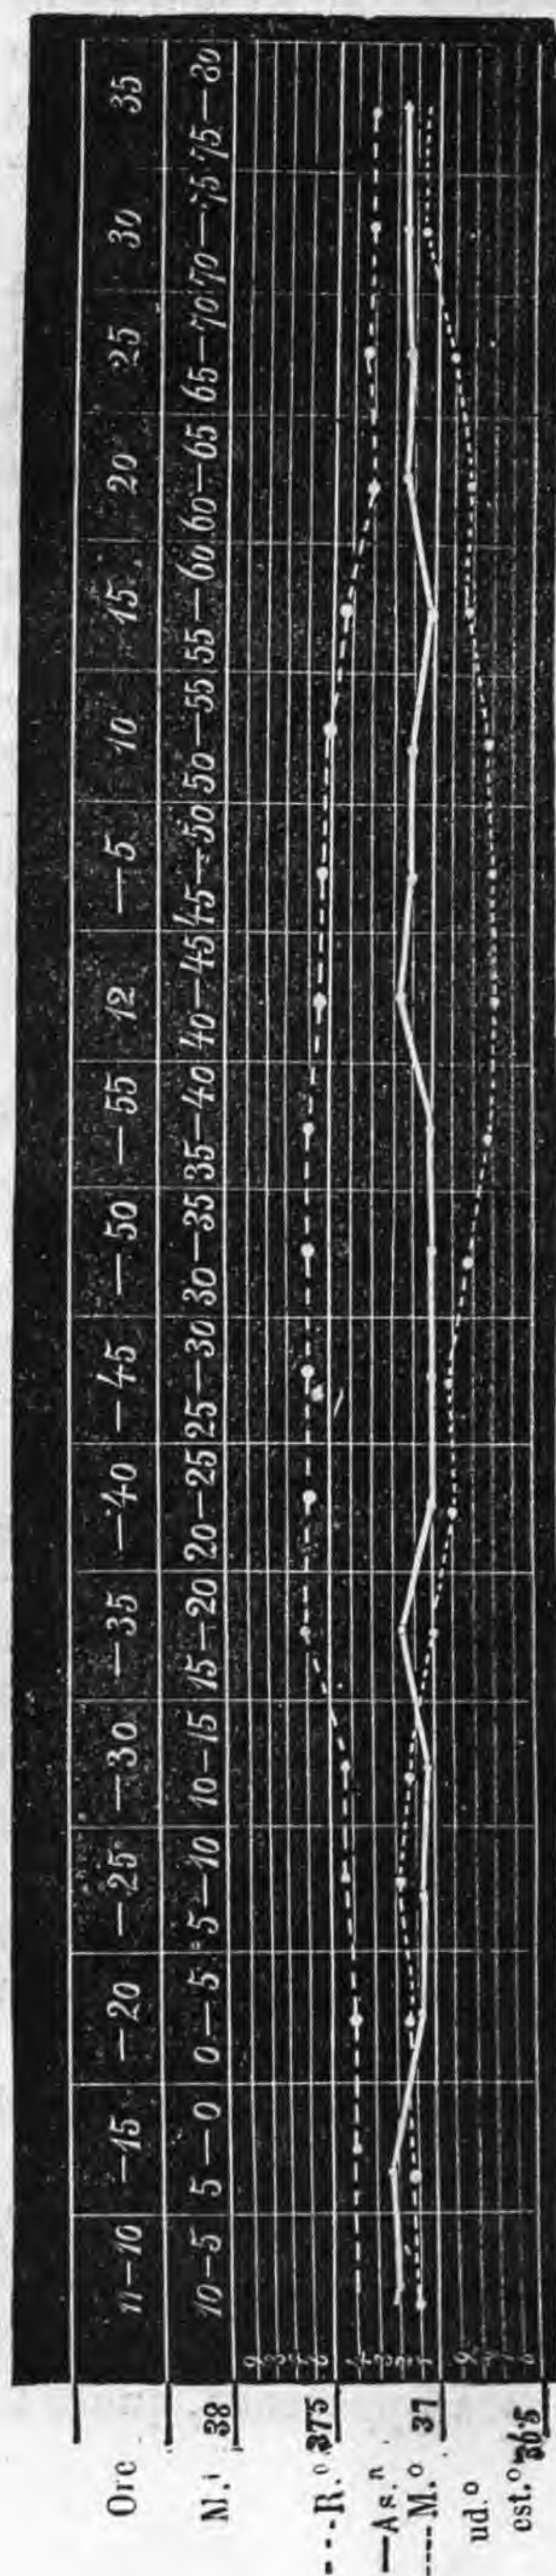 Ore 11–10 –15 –20 –25 –30 –35 –40 –45 –50 –55 12 –5 10 15 20 25 30 35
M.i 10–5 5–0 0–5 5–10 10–15 15–20 20–25 25–30 30–35 35–40 40–45 45–50 50–55 55–60 60–65 65–70 70–75 75–80
38
R.o 375
As.n
M.o 37
ud.o
est.o 36.5